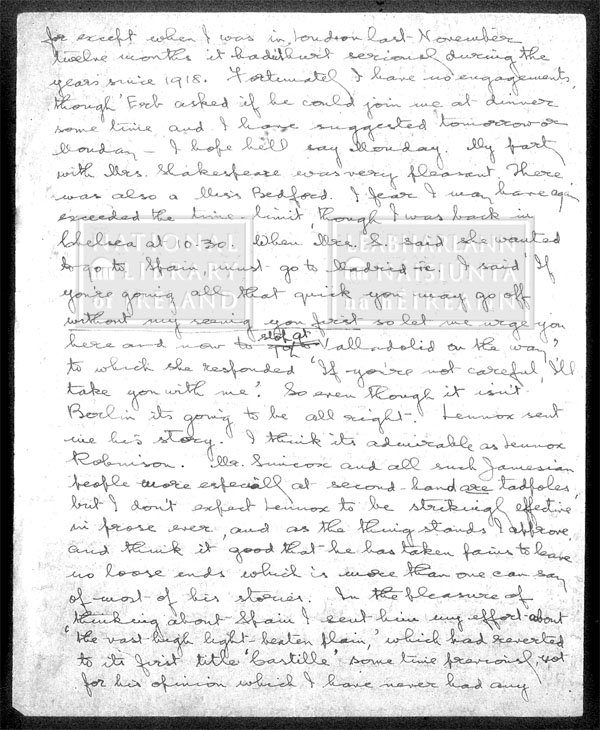 for except when I was in London last November
twelve months it hadn't hurt seriously during the
years since 1918. Fortunately I have no engagements,
though 'Erb asked if he could join me at dinner
some time and I have suggested tomorrow or
Monday – I hope he'll say Monday. My party
with Mrs. Shakespeare was very pleasant. There
was also a Miss Bedford. I fear I may have again
exceeded the time limit, though I was back in
Chelsea at 10.30. When Mrs. S. said she wanted
to go to Spain, must go to Madrid I said 'If
you're going all that quick you may go off
without my seeing you first so let me urge you
here and now to stop at Valladolid on the way',
to which she responded 'If you're not careful, I'll
take you with me'. So even though it isn't
Berlin its going to be all right. Lennox sent
me his story. I think its admirable as Lennox
Robinson. Mr. Simcox and all such Jamesian
people more especially at second-hand are tadpoles,
but I don't expect Lennox to be strikingly effective
in prose ever, and as the thing stands I approve
and think it good that he has taken pains to leave
no loose ends which is more than one can say
of most of his stories. In the pleasure of
thinking about Spain I sent him my effort about
'the vast high light-beaten plain,' which had reverted
to its first title 'Castille' some time previously, not
for his opinion which I have never had any
NATIONAL LIBRARY of IRELAND
LEABHARLANN NAISIUNTA na hEIREANN